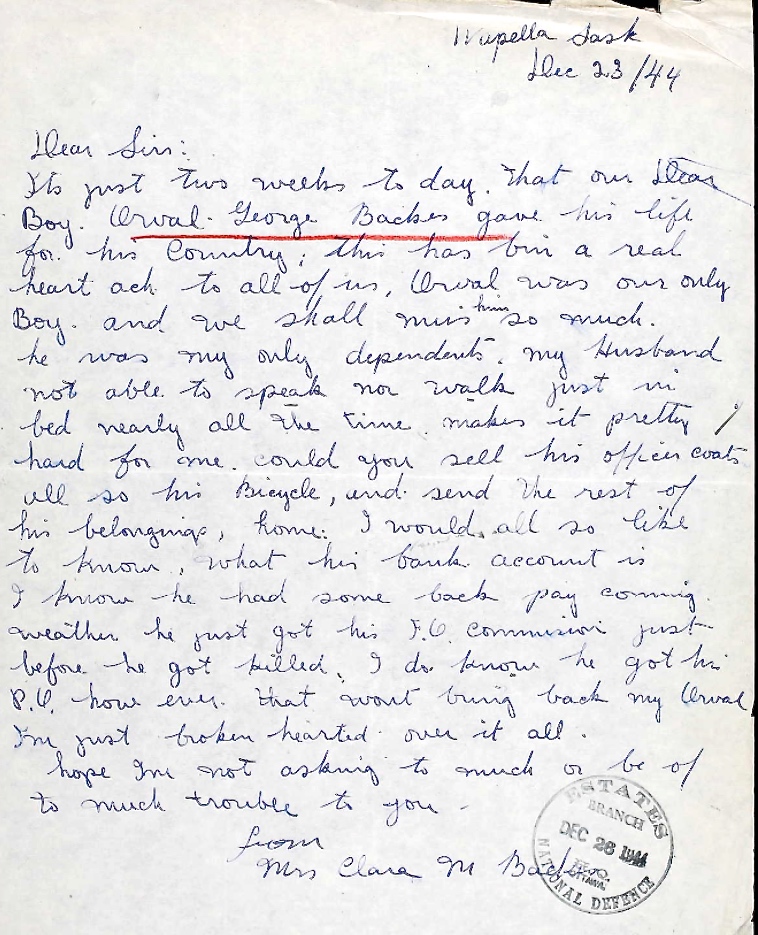 Wapella Sask
Dec 23/44
Dear Sir:
Its just two weeks to day. that our Dear
Boy. Orval. George Backes gave his life
for. his Country; this has bin a real
heart ach to all of us, Orval was our only
Boy. and we shall miss him so much.
he was my only dependents. my Husband
not able to speak nor walk just in
bed nearly all the time. makes it pretty
hard for me. could you sell his officer coats
all so his Bicycle, and send the rest of
his belongings, home. I would, all so like
to know, what his bank account is
I know he had some back pay coming.
weather he just got his F.O. commision just
before he got killed, I do know he got his
P.O. how ever. that wont bring back my Orval
I'm just broken hearted over it all.
hope I'm not asking to much or be of
to much trouble to you -
from
Mrs Clara M Backes.
ESTATES
BRANCH
DEC 28 1944
OTTAWA.
NATIONAL DEFENCE